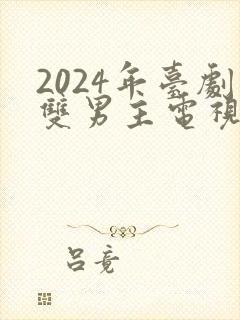 2024年臺劇
雙男主電視
呂竟